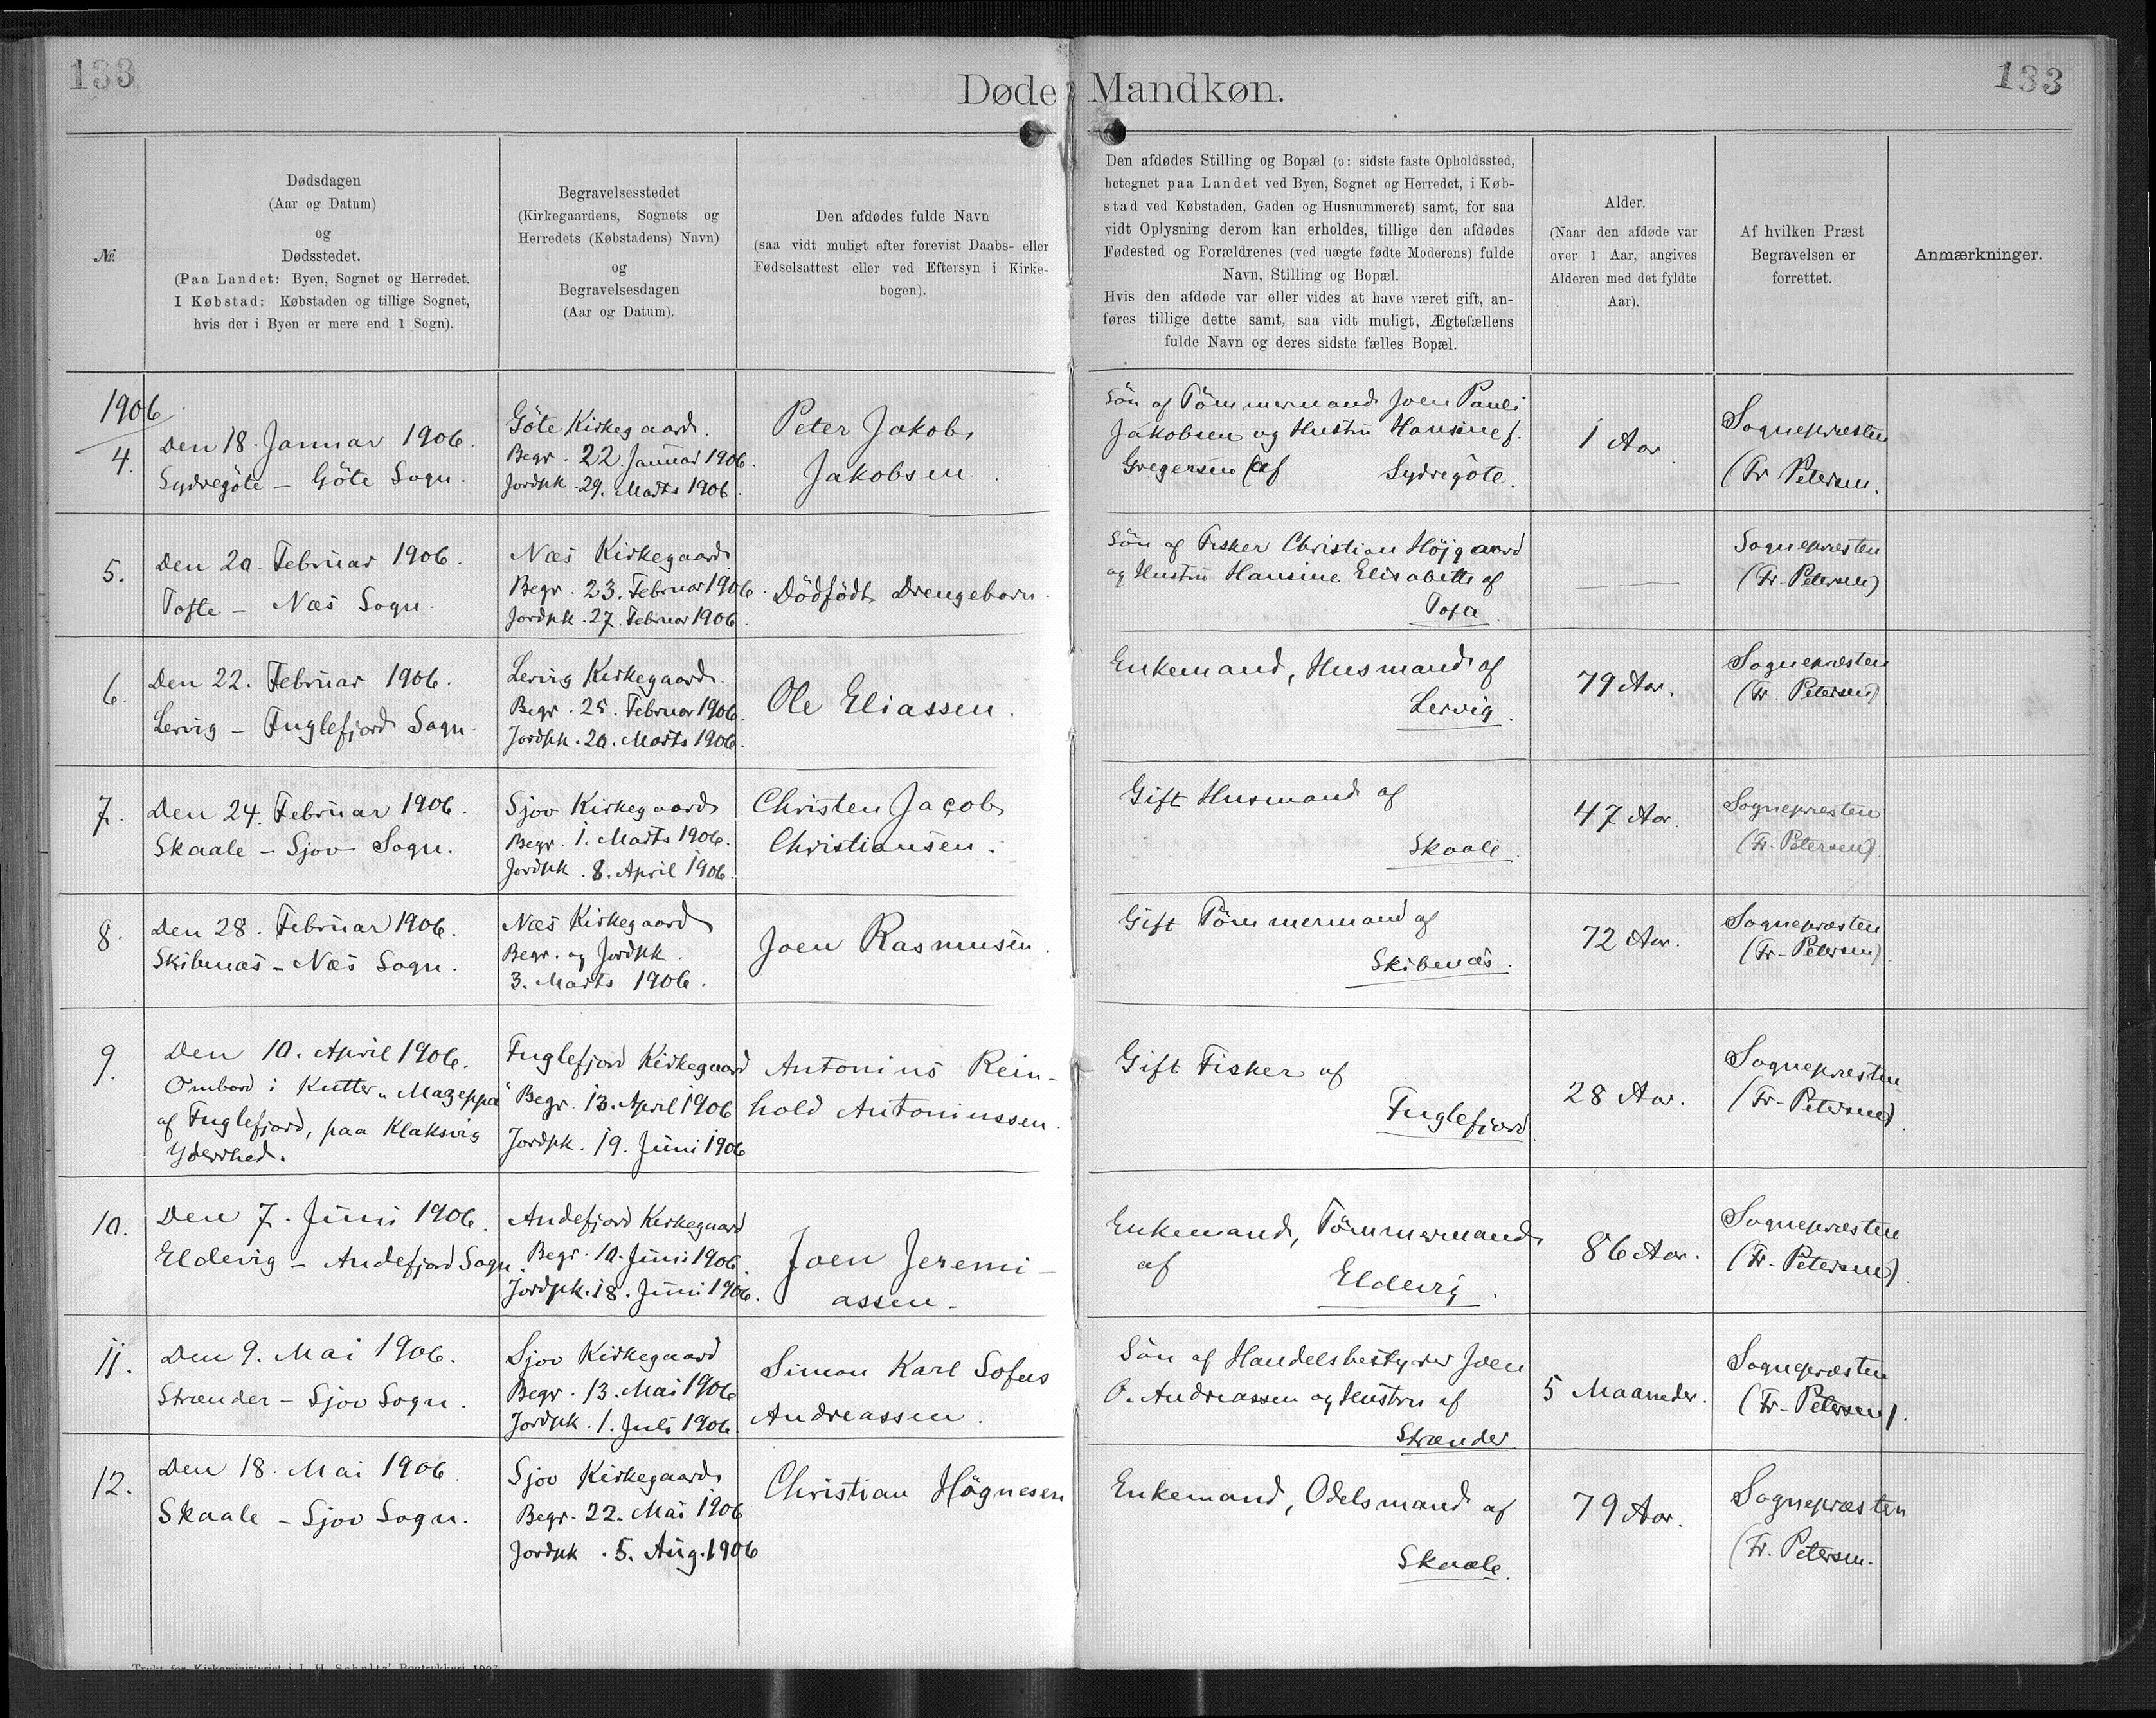 133
133
Døde Mandkøn.
№
Dødsdagen
(Aar og Datum)
og
Dødsstedet.
(Paa Landet: Byen, Sognet og Herredet.
I Købstad: Købstaden og tillige Sognet,
hvis der i Byen er mere end 1 Sogn).
Begravelsesstedet
(Kirkegaardens, Sognets og
Herredets (Købstadens) Navn)
og
Begravelsesdagen
(Aar og Datum).
Den afdødes fulde Navn
(saa vidt muligt efter forevist Daabs- eller
Fødselsattest eller ved Eftersyn i Kirke-
bogen).
Den afdødes Stilling og Bopæl (ɔ: sidste faste Opholdssted,
betegnet paa Landet ved Byen, Sognet og Herredet, i Køb-
stad ved Købstaden, Gaden og Husnummeret) samt, for saa
vidt Oplysning derom kan erholdes, tillige den afdødes
Fødested og Forældrenes (ved uægte fødte Moderens) fulde
Navn, Stilling og Bopæl.
Hvis den afdøde var eller vides at have været gift, an-
føres tillige dette samt, saa vidt muligt, Ægtefællens
fulde Navn og deres sidste fælles Bopæl.
Alder.
(Naar den afdøde var
over 1 Aar, angives
Alderen med det fyldte
Aar).
Af hvilken Præst
Begravelsen er
forrettet.
Anmærkninger.
1906
4.
Den 18. Januar 1906.
Sydregöte – Göte Sogn.
Göte Kirkegaard.
Begr. 22. Januar 1906.
Jordpk. 29. Marts 1906.
Peter Jakob
Jakobsen.
Sön af Tömmermand Joen Pauli
Jakobsen og Hustru Hansine f.
Gregersen af Sydregöte.
1 Aar.
Sognepræsten
(Fr Petersen.
5.
Den 20. Februar 1906.
Tofte – Næs Sogn.
Næs Kirkegaard
Begr. 23. Februar 1906.
Jordpk. 27. Februar 1906.
Dödfödt Drengebarn.
Sön af Fisker Christian Höjgaard
og Hustru Hansine Elisabeth af
Toſa.
—
Sognepræsten
(Fr. Petersen)
6.
Den 22. Februar 1906.
Lervig – Fuglefjord Sogn.
Lervig Kirkegaard.
Begr. 25. Februar 1906.
Jordpk. 20. Marts 1906.
Ole Eliassen.
Enkemand, Husmand af
Lervig.
79 Aar.
Sognepræsten
(Fr. Petersen)
7.
Den 24. Februar 1906.
Skaale – Sjov Sogn.
Sjov Kirkegaard
Begr. 1. Marts 1906.
Jordpk. 8. April 1906.
Christen Jacob
Christiansen.
Gift Husmand af
Skaale.
47 Aar.
Sognepræsten
(Fr. Petersen).
8.
Den 28. Februar 1906.
Skibenæs – Næs Sogn.
Næs Kirkegaard
Begr. og Jordpk.
3. Marts 1906.
Joen Rasmusen.
Gift Tömmermand af
Skibenæs.
72 Aar.
Sognepræsten
(Fr. Petersen).
9.
Den 10. April 1906.
Ombord i Kutter „Mazeppa“
af Fuglefjord, paa Klaksvig
Yderrhed.
Fuglefjord Kirkegaard
Begr. 13. April 1906
Jordpk. 19. Juni 1906
Antonius Rein-
hold Antoniussen.
Gift Fisker af
Fuglefjord.
28 Aar.
Sognepræsten
(Fr. Petersen).
10.
Den 7. Juni 1906.
Eldevig – Andefjord Sogn.
Andefjord Kirkegaard
Begr. 10. Juni 1906.
Jordpk. 18. Juni 1906.
Joen Jeremi-
assen.
Enkemand, Tömmermand
af Eldevig.
86 Aar.
Sognepræsten
(Fr. Petersen).
11.
Den 9. Mai 1906.
Strænder – Sjov Sogn.
Sjov Kirkegaard
Begr. 13. Mai 1906
Jordpk. 1. Juli 1906.
Simon Karl Sofus
Andreassen.
Sön af Handelsbestyrer Joen
O. Andreassen og Hustru af
Strænder.
5 Maaneder.
Sognepræsten
(Fr. Petersen).
12.
Den 18. Mai 1906.
Skaale – Sjov Sogn.
Sjov Kirkegaard
Begr. 22. Mai 1906
Jordpk. 5. Aug. 1906
Christian Högnesen
Enkemand, Odelsmand af
Skaale.
79 Aar.
Sognepræsten
(Fr. Petersen.